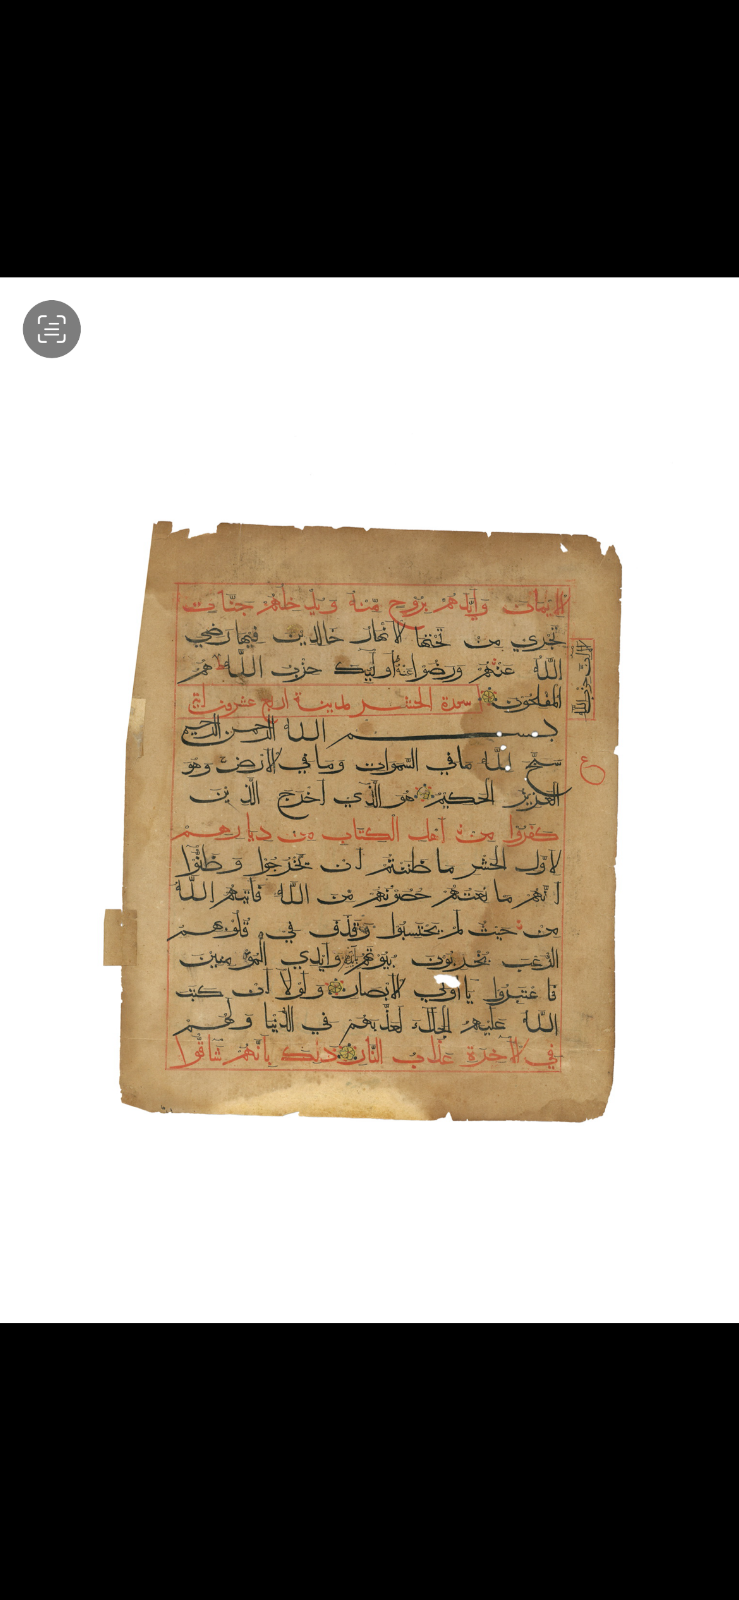 الايمان وايدهم بروح منه ويدخلهم جنات
تجري من تحتها الانهار خالدين فيها رضي
الله عنهم ورضوا عنه اوليك حزب الله هم
المفلحون سورة الحشر مدينة اربع عشرون اية
بسم الله الرحمن الرحيم
سبح لله ما في السموات وما في الارض وهو
العزيز الحكيم هو الذي اخرج الذين
كفروا من اهل الكتاب من ديارهم
لاول الحشر ما ظننتم ان يخرجوا وظنوا
انهم ما نعتهم حصونهم من الله فاتيهم الله
من حيث لم يحتسبوا وقذف في قلوبهم
الرعب يخربون بيوتهم وايدي المؤمنين
فاعتبروا يا اولي الابصار ولولا ان كتب
الله عليهم الجلاء لعذبهم في الدنيا ولهم
في الاخرة عذاب النار ذلك بانهم شاقوا
ع